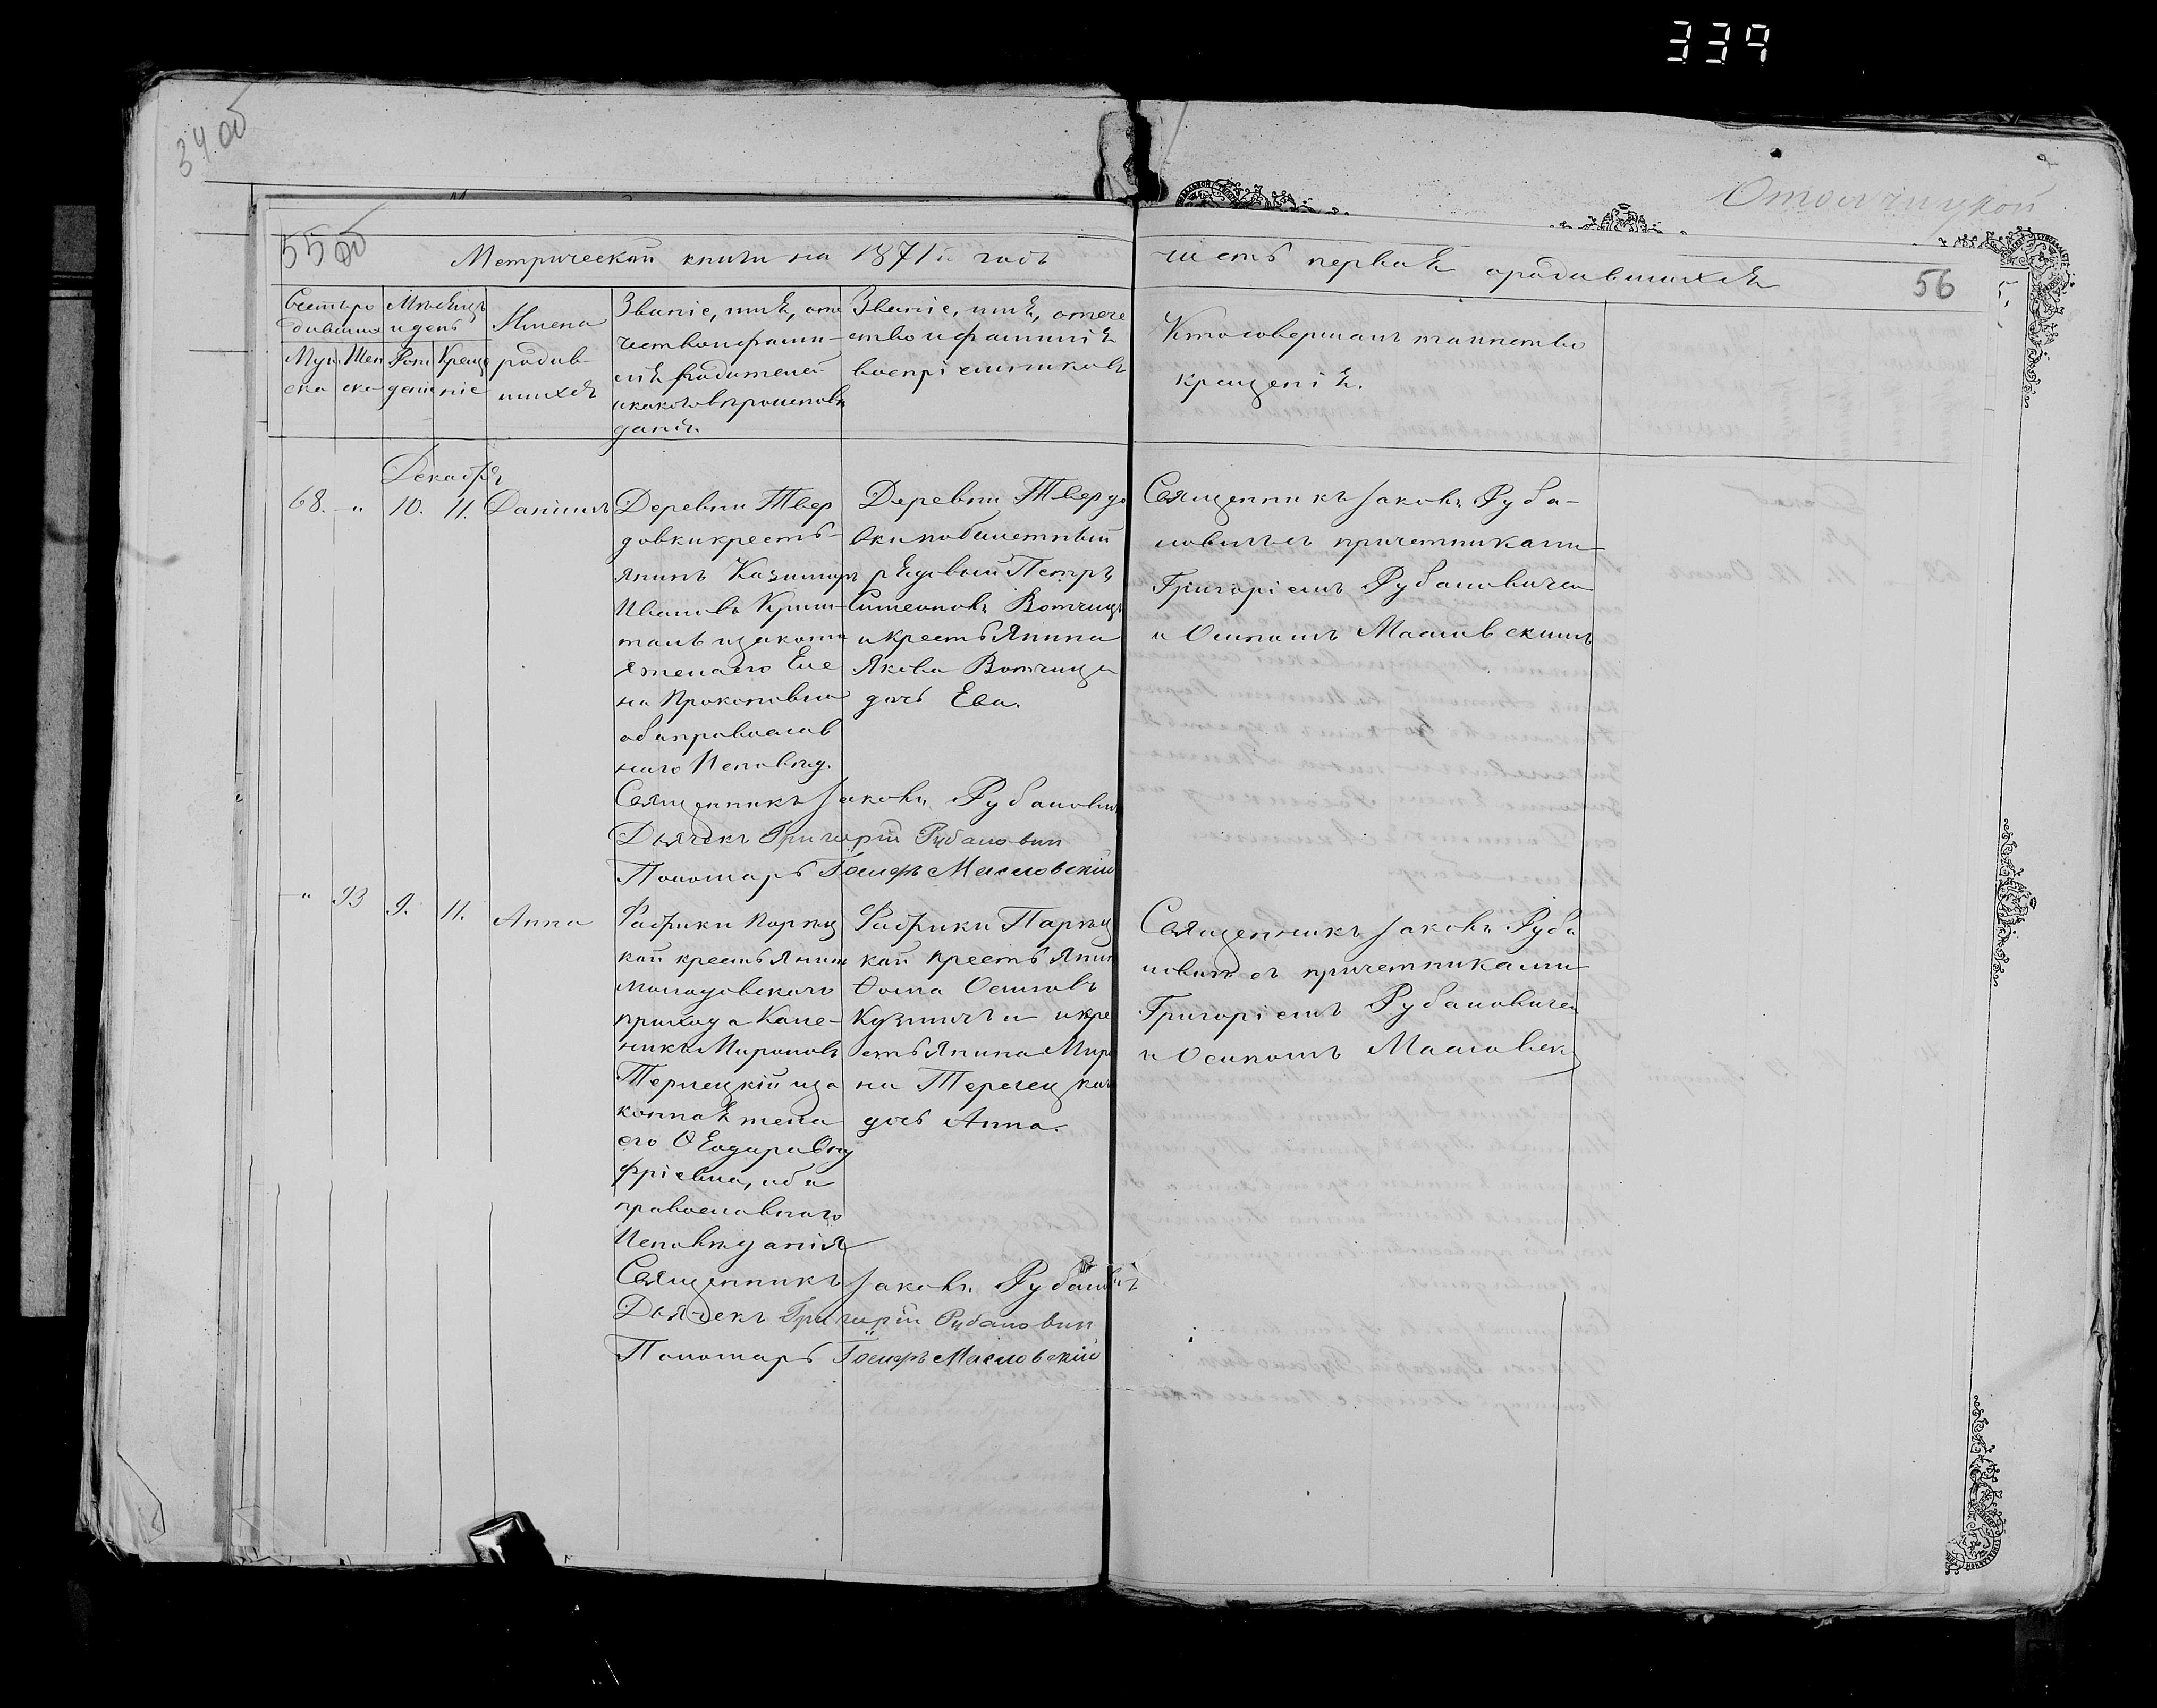 339
34 об
Столпицкой
55 об
Метрической книги на 1871й годъ
часть первая о родившихся
56
Счетъ ро
дившихся
Муж
ска
Жен
ска
Мѣсяцъ
и день
Рож
деніе
Креще
ніе
Имена
родив-
шихся
Званіе, имя, оте
чество и фами-
лія родителей
и какого вѣроисповѣ
данія.
Званіе, имя, отече
ство и фамилія
воспріемниковъ
Кто совершалъ таинство
крещенія.
Декабрь
68. „ 10. 11. Даніилъ
Деревни Твер
довки кресть-
янинъ Казимиръ
Ивановъ
и закон
я жена его Еле
на Прокоповна
оба православ
наго Исповѣд.
Деревни Твердо
вки побилетный
рядовый Петръ
Симеоновъ Вотчицъ
и крестьянина
Якова Вотчица
дочь Ева.
Священникъ Іаковъ Руба-
новичъ съ причетниками
Григоріемъ Рубановичемъ
и Осипомъ Масловскимъ
Священникъ Іаковъ Рубановичъ
Дьячекъ Григорій Рубанович
Пономарь Іосифъ Масловскій
„ 93 9. 11. Анна
Фабрики Порѣц
кой крестьянинъ
Молодовскаго
прихода Кале-
никъ Мироновъ
Терлецкій и за
конная жена
его Ѳеодора Ону
фріевна, оба
православнаго
Исповѣданія
Фабрики Парѣц
кой крестьянин
Ѳома Осиповъ
Кузмичъ и кре
стьянина Миро
на Терлецкаго
дочь Анна.
Священникъ Іаковъ Руба
новичъ съ причетниками
Григоріемъ Рубановичемъ
и Осипомъ Масловск
Священникъ Іаковъ Рубановичъ
Дьячекъ Григорій Рубанович
Пономарь Іосифъ Масловскій